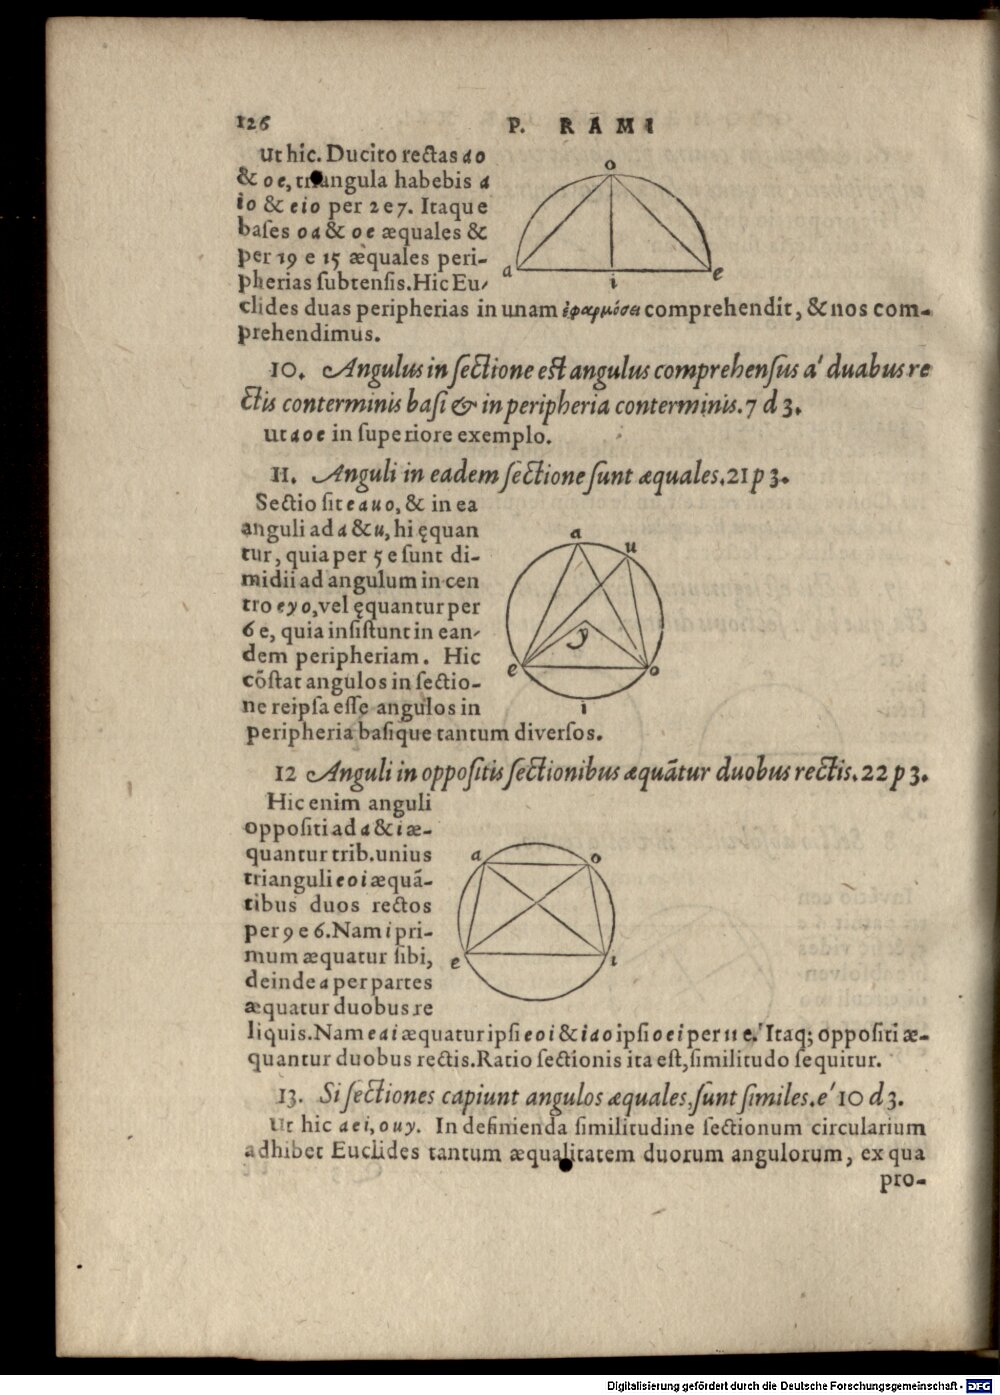 126 P. RAMI
ut hic. Ducito rectas ao
& oe, triangula habebis a
io & eio per 2 e 7. Itaque
bases oa & oe æquales &
per 19 e 15 æquales peri-
pherias subtensis. Hic Eu-
clides duas peripherias in unam ἐφαρμόσει comprehendit, & nos com-
prehendimus.
o
a
e
i
10. Angulus in sectione est angulus comprehensus a' duabus re
ctis conterminis basi & in peripheria conterminis. 7 d 3.
ut aoe in superiore exemplo.
11. Anguli in eadem sectione sunt æquales. 21 p 3.
Sectio sit eauo, & in ea
anguli ad a & u, hi ęquan
tur, quia per 5 e sunt di-
midii ad angulum in cen
tro eyo, vel ęquantur per
6 e, quia insistunt in ean-
dem peripheriam. Hic
cōstat angulos in sectio-
ne reipsa esse angulos in
peripheria basique tantum diversos.
a
u
y
e
o
i
12 Anguli in oppositis sectionibus æquātur duobus rectis. 22 p 3.
Hic enim anguli
oppositi ad a & i æ-
quantur trib. unius
trianguli eoi æquā-
tibus duos rectos
per 9 e 6. Nam i pri-
mum æquatur sibi,
deinde a per partes
æquatur duobus re
liquis. Nam eai æquatur ipsi eoi & iao ipsi oei per 11 e. Itaq; oppositi æ-
quantur duobus rectis. Ratio sectionis ita est, similitudo sequitur.
a
o
e
i
13. Si sectiones capiunt angulos æquales, sunt similes. e' 10 d 3.
Ut hic aei, ouy. In definienda similitudine sectionum circularium
adhibet Euclides tantum æqualitatem duorum angulorum, ex qua
pro-
Digitalisierung gefördert durch die Deutsche Forschungsgemeinschaft - DFG